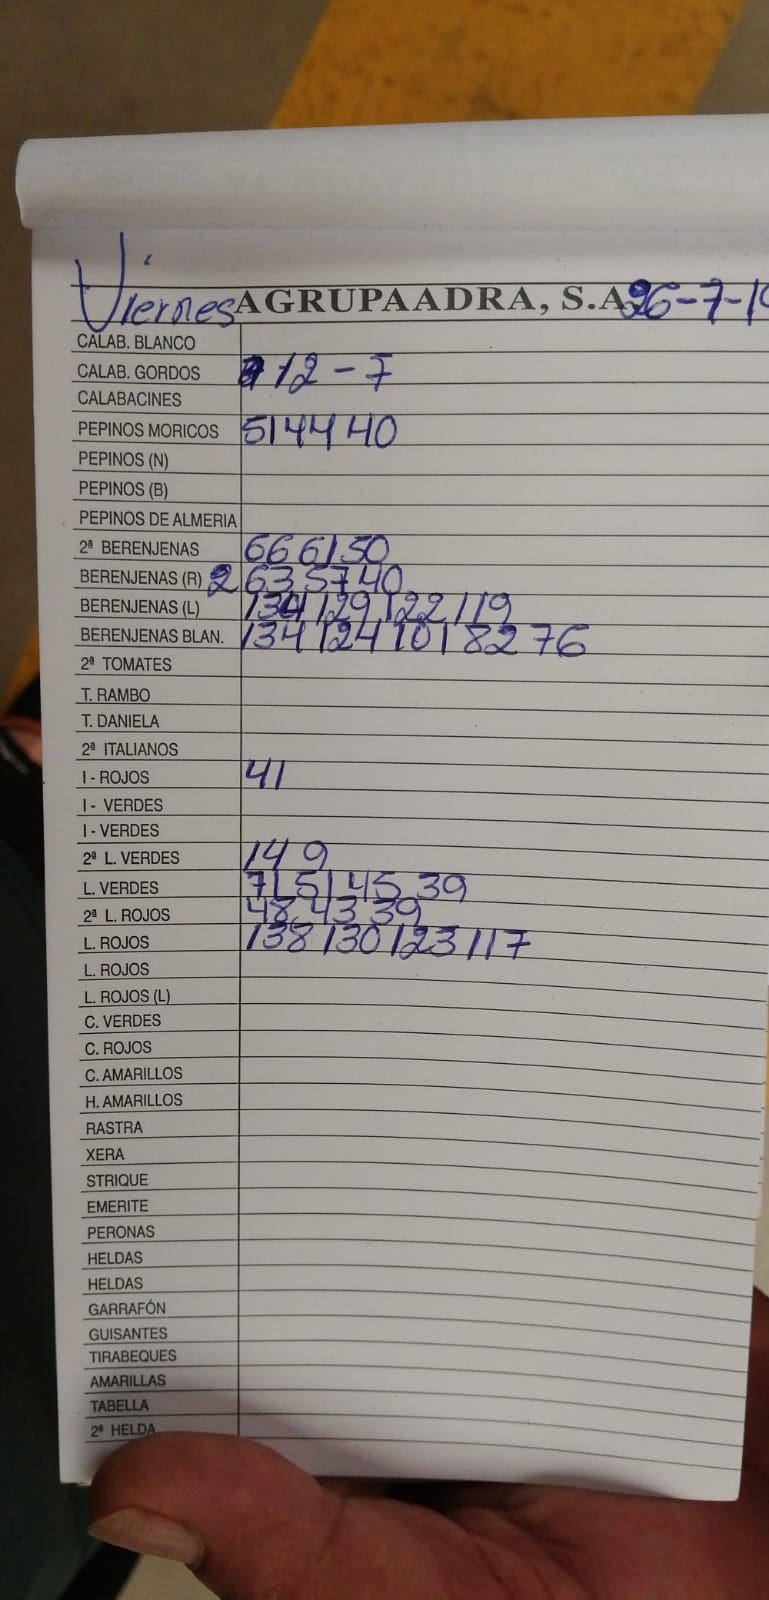 Viernes AGRUPAADRA, S.A. 26-7-19
CALAB. BLANCO
CALAB. GORDOS 12 - 7
CALABACINES
PEPINOS MORICOS 51 44 40
PEPINOS (N)
PEPINOS (B)
PEPINOS DE ALMERIA
2ª BERENJENAS 66 61 50
BERENJENAS (R) 2 63 57 40
BERENJENAS (L) 134 129 122 119
BERENJENAS BLAN. 134 124 101 82 76
2ª TOMATES
T. RAMBO
T. DANIELA
2ª ITALIANOS
I - ROJOS 41
I - VERDES
I - VERDES
2ª L. VERDES 14 9
L. VERDES 71 51 45 39
2ª L. ROJOS 48 43 39
L. ROJOS 138 130 123 117
L. ROJOS
L. ROJOS (L)
C. VERDES
C. ROJOS
C. AMARILLOS
H. AMARILLOS
RASTRA
XERA
STRIQUE
EMERITE
PERONAS
HELDAS
HELDAS
GARRAFÓN
GUISANTES
TIRABEQUES
AMARILLAS
TABELLA
2ª HELDA